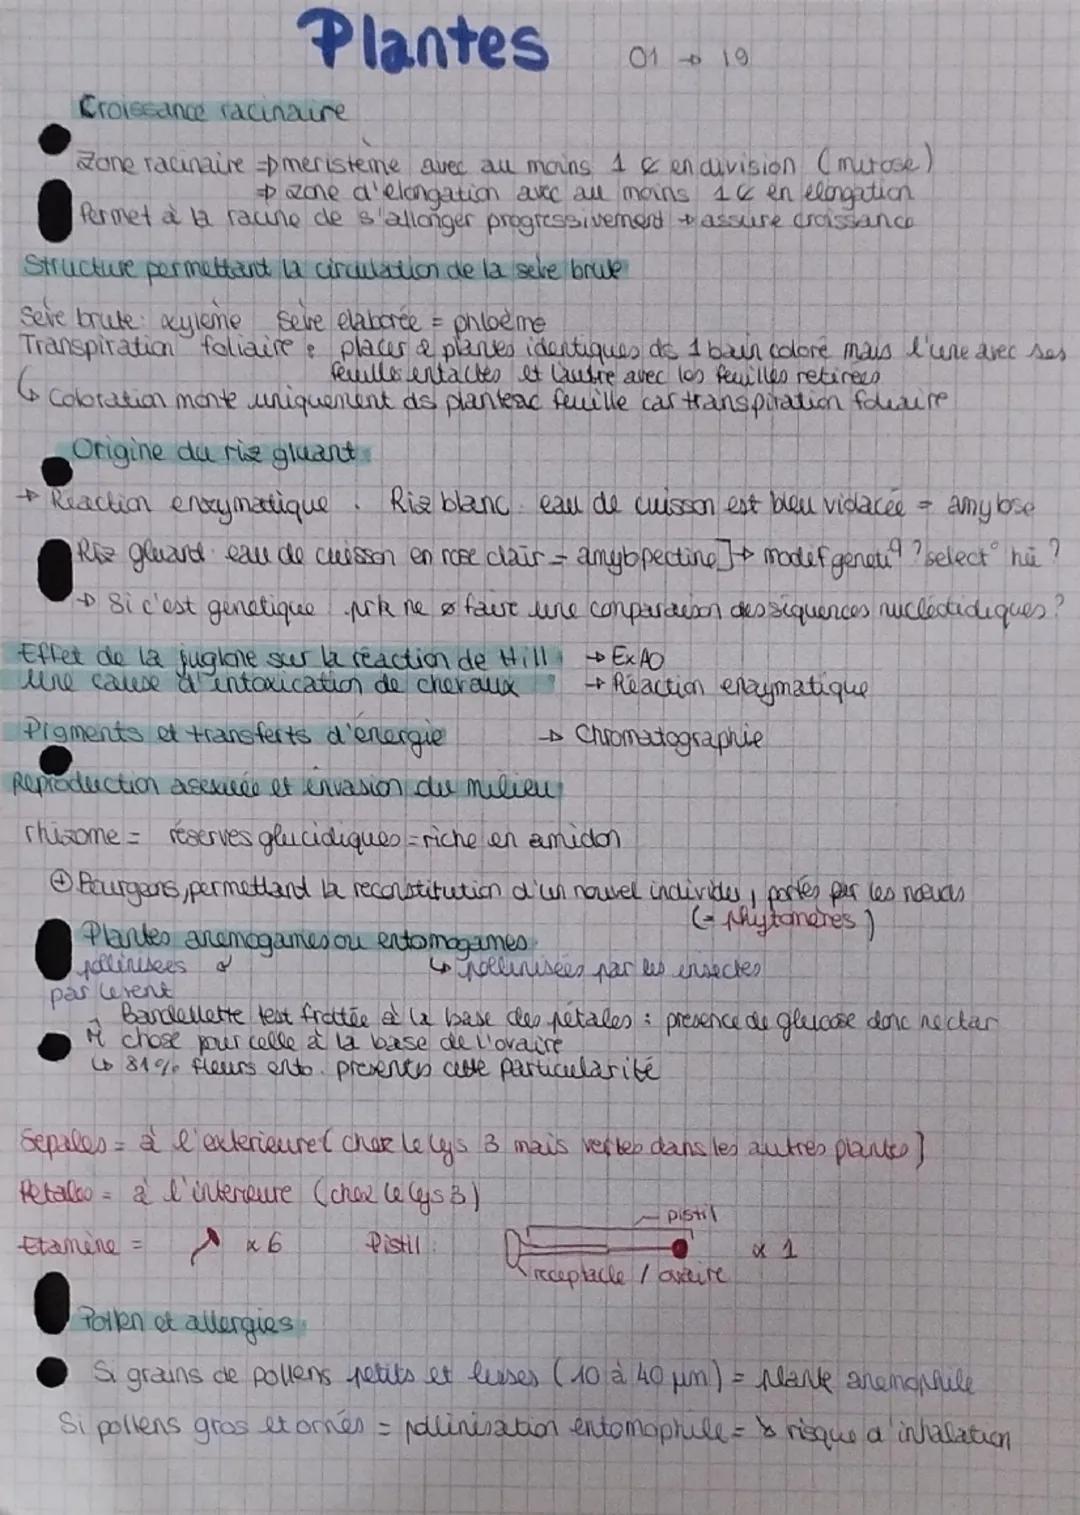 Plantes 01 → 19
Croissance racinaire
Zone racinaire ⇒ meristème avec au moins 1 ₵ en division (mitose)
⇒ zone d'élongation avec au moins 1 ₵ en élongation
Permet à la racine de s'allonger progressivement → assure croissance
Structure permettant la circulation de la sève brute
Sève brute: xylème Sève elaborée = phloème
Transpiration foliaire : placer 2 plantes identiques ds 1 bain coloré mais l'une avec ses
feuilles entactes et l'autre avec les feuilles retirées
↳ Coloration monte uniquement ds plante ac feuille car transpiration foliaire
Origine du riz gluant
→ Réaction enzymatique . Riz blanc: eau de cuisson est bleu violacée = amylose
Riz gluant: eau de cuisson en rose clair = amylopectine ]→ modif genetiq ? select° hū ?
→ Si c'est génétique prk ne faire une comparaison des séquences nucléotidiques ?
Effet de la juglone sur la réaction de Hill → ExAO
Une cause d'intoxication de chevaux → Réaction enzymatique
Pigments et transferts d'énergie → Chromatographie
Reproduction asexuée et invasion du milieu
rhizome = réserves glucidiques = riche en amidon
⊕ Bourgeons, permettant la reconstitution d'un nouvel individu, portés par les nœuds
(= phytomères)
Plantes anemogames ou entomogames
pollinisées ↳ pollinisées par les insectes
par le vent
Bandellette test frottée à la base des pétales : présence de glucose donc nectar
M̂ chose pour celle à la base de l'ovaire
↳ 81% fleurs ento. presentes cette particularité
Sepales = à l'exterieure ( chez le lys 3 mais vertes dans les autres plantes )
Petales = à l'interieure (chez le lys 3)
Etamine = x 6 Pistil : pistil x 1
receptacle / ovaire
Pollen et allergies
Si grains de pollens petits et lisses (10 à 40 µm) = plante anemophile
Si pollens gros et ornés = pollinisation entomophile = ↘ risque d'inhalation